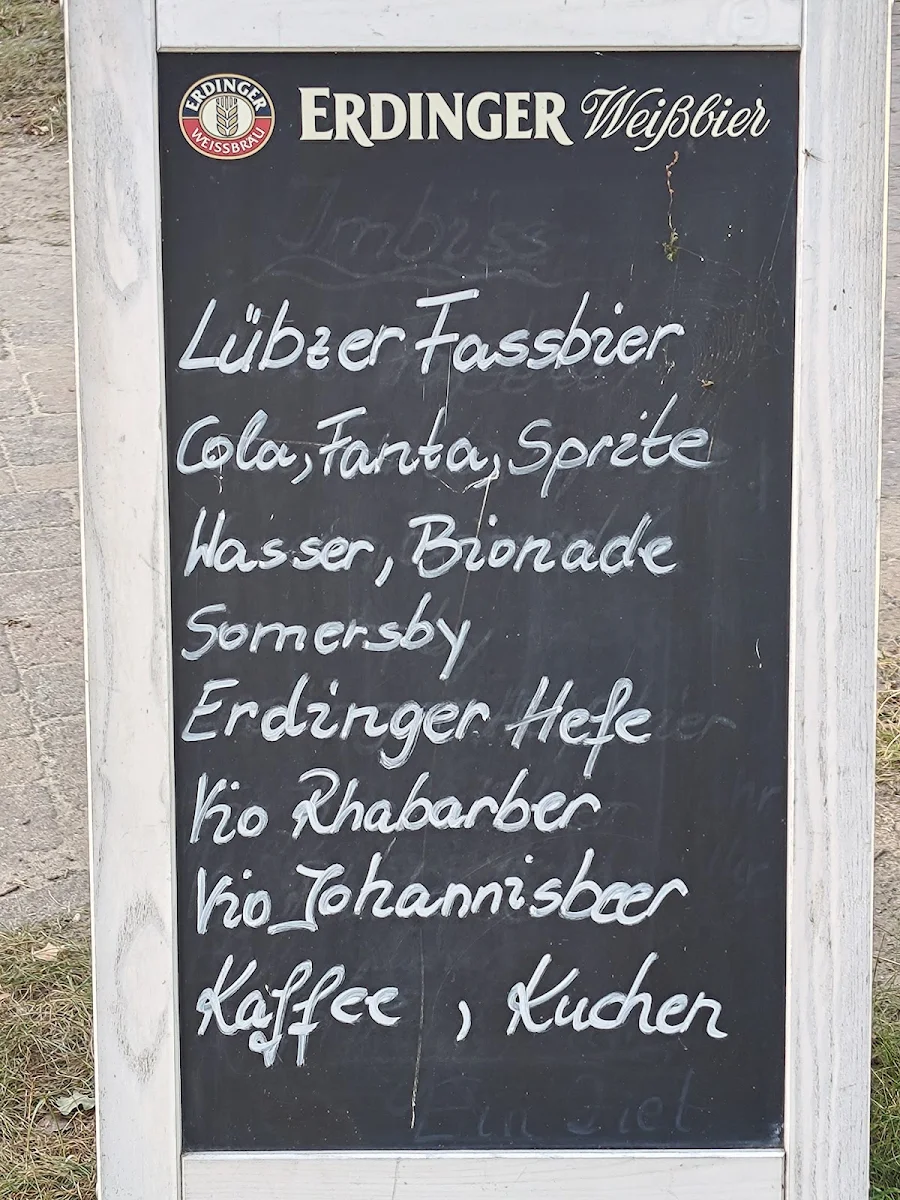 ERDINGER
WEISSBRÄU
ERDINGER Weißbier
Imbiss
Lübzer Fassbier
Cola, Fanta, Sprite
Wasser, Bionade
Somersby
Erdinger Hefe
Vio Rhabarber
Vio Johannisbeer
Kaffee , Kuchen